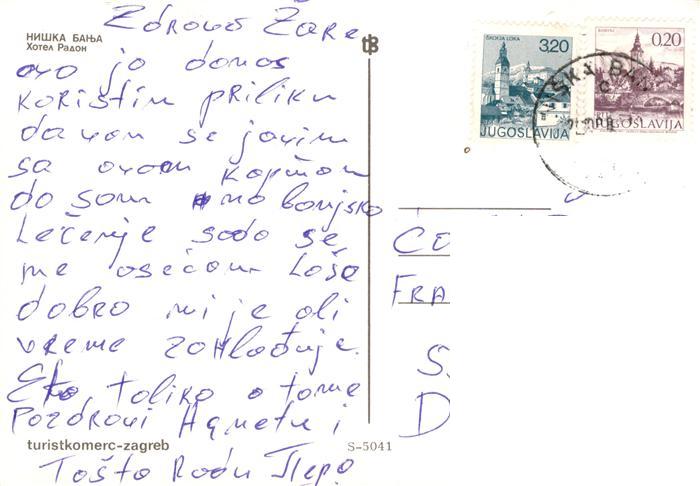 НИШКА БАЊА
Хотел Радон
Zdravo Žare
evo ja danas
koristim priliku
da vam se javim
sa ovom
došam na banjsko
Lečenje sada se
ne osećam Loše
dobro mi je ali
vreme zahlađuje.
Eto, toliko o tome
Pozdravi i
Tošta
turistkomerc-zagreb
S-5041
tB
ŠKOFJA LOKA
3.20
JUGOSLAVIJA
0.20
JUGOSLAVIJA
ŠKA BAN
CO
FRA
S.
D